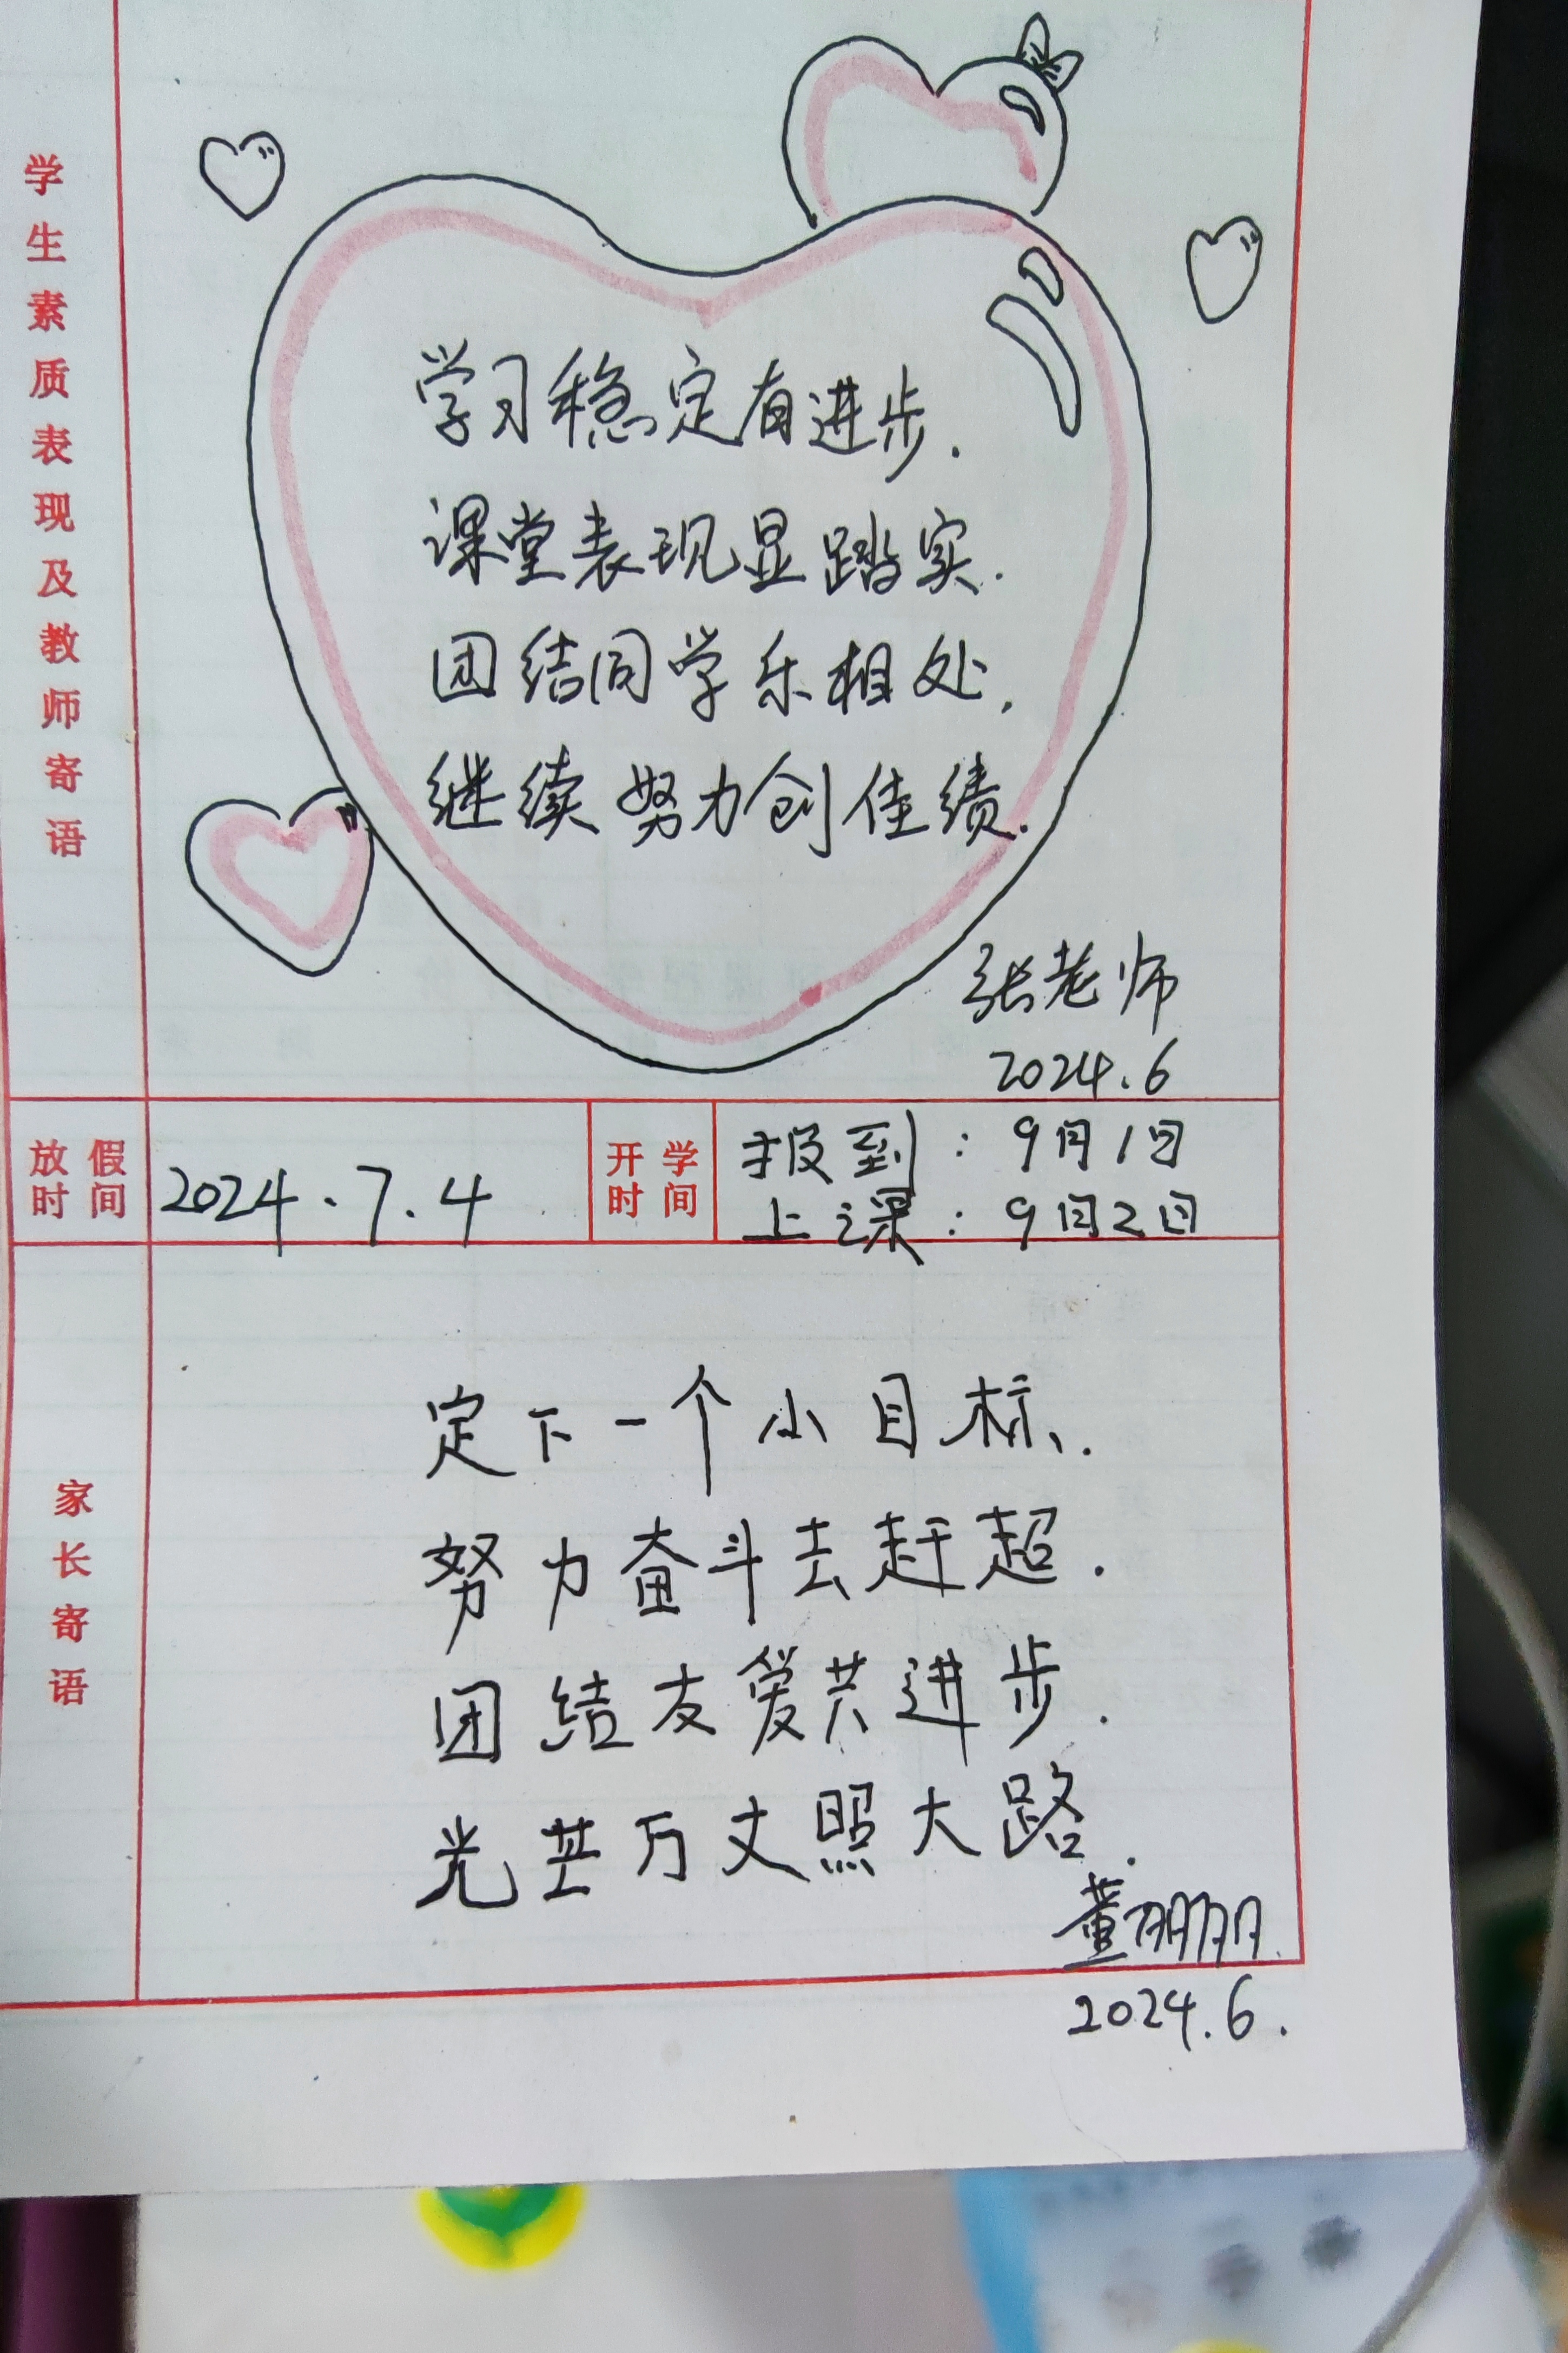 学生素质表现及教师寄语
学习稳定有进步.
课堂表现显踏实.
团结同学乐相处,
继续努力创佳绩.
张老师
2024.6
放假时间
2024.7.4
开学时间
报到：9月1日
上课：9月2日
家长寄语
定下一个小目标.
努力奋斗去赶超.
团结友爱共进步.
光芒万丈照大路.
董朋朋
2024.6.